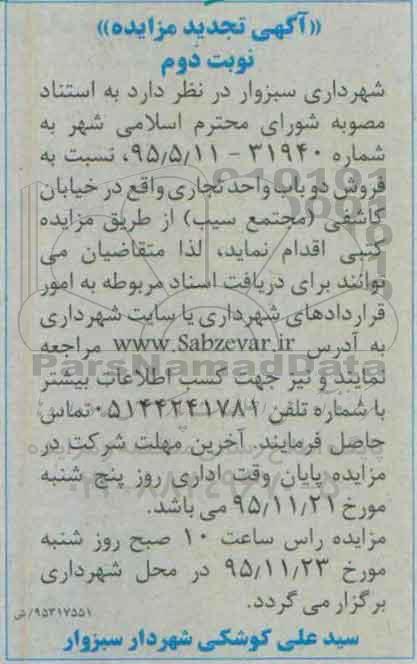 «آگهی تجدید مزایده»
نوبت دوم
شهرداری سبزوار در نظر دارد به استناد
مصوبه شورای محترم اسلامی شهر به
شماره ۳۱۹۴۰ - ۹۵/۵/۱۱، نسبت به
فروش دو باب واحد تجاری واقع در خیابان
کاشفی (مجتمع سیب) از طریق مزایده
کتبی اقدام نماید، لذا متقاضیان می
توانند برای دریافت اسناد مربوطه به امور
قراردادهای شهرداری یا سایت شهرداری
به آدرس www.Sabzevar.ir مراجعه
ParsNamadData
نمایند و نیز جهت کسب اطلاعات بیشتر
با شماره تلفن ۰۵۱۴۴۲۴۱۷۸۱ تماس
حاصل فرمایند. آخرین مهلت شرکت در
مزایده پایان وقت اداری روز پنج شنبه
مورخ ۹۵/۱۱/۲۱ می باشد.
مزایده راس ساعت ۱۰ صبح روز شنبه
مورخ ۹۵/۱۱/۲۳ در محل شهرداری
برگزار می گردد.
۹۵۳۱۷۵۵۱/ش
سید علی کوشکی شهردار سبزوار